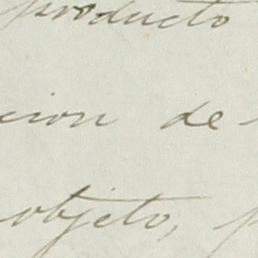 producto
cion de-
objeto,